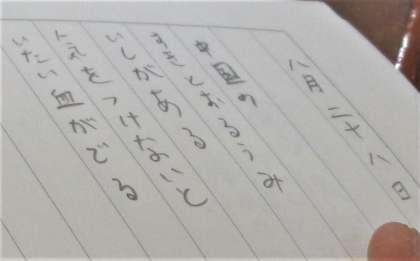 八月二十八日
中国の
すきとおるうみ
いしがある
気をつけないと
いたい血がでる